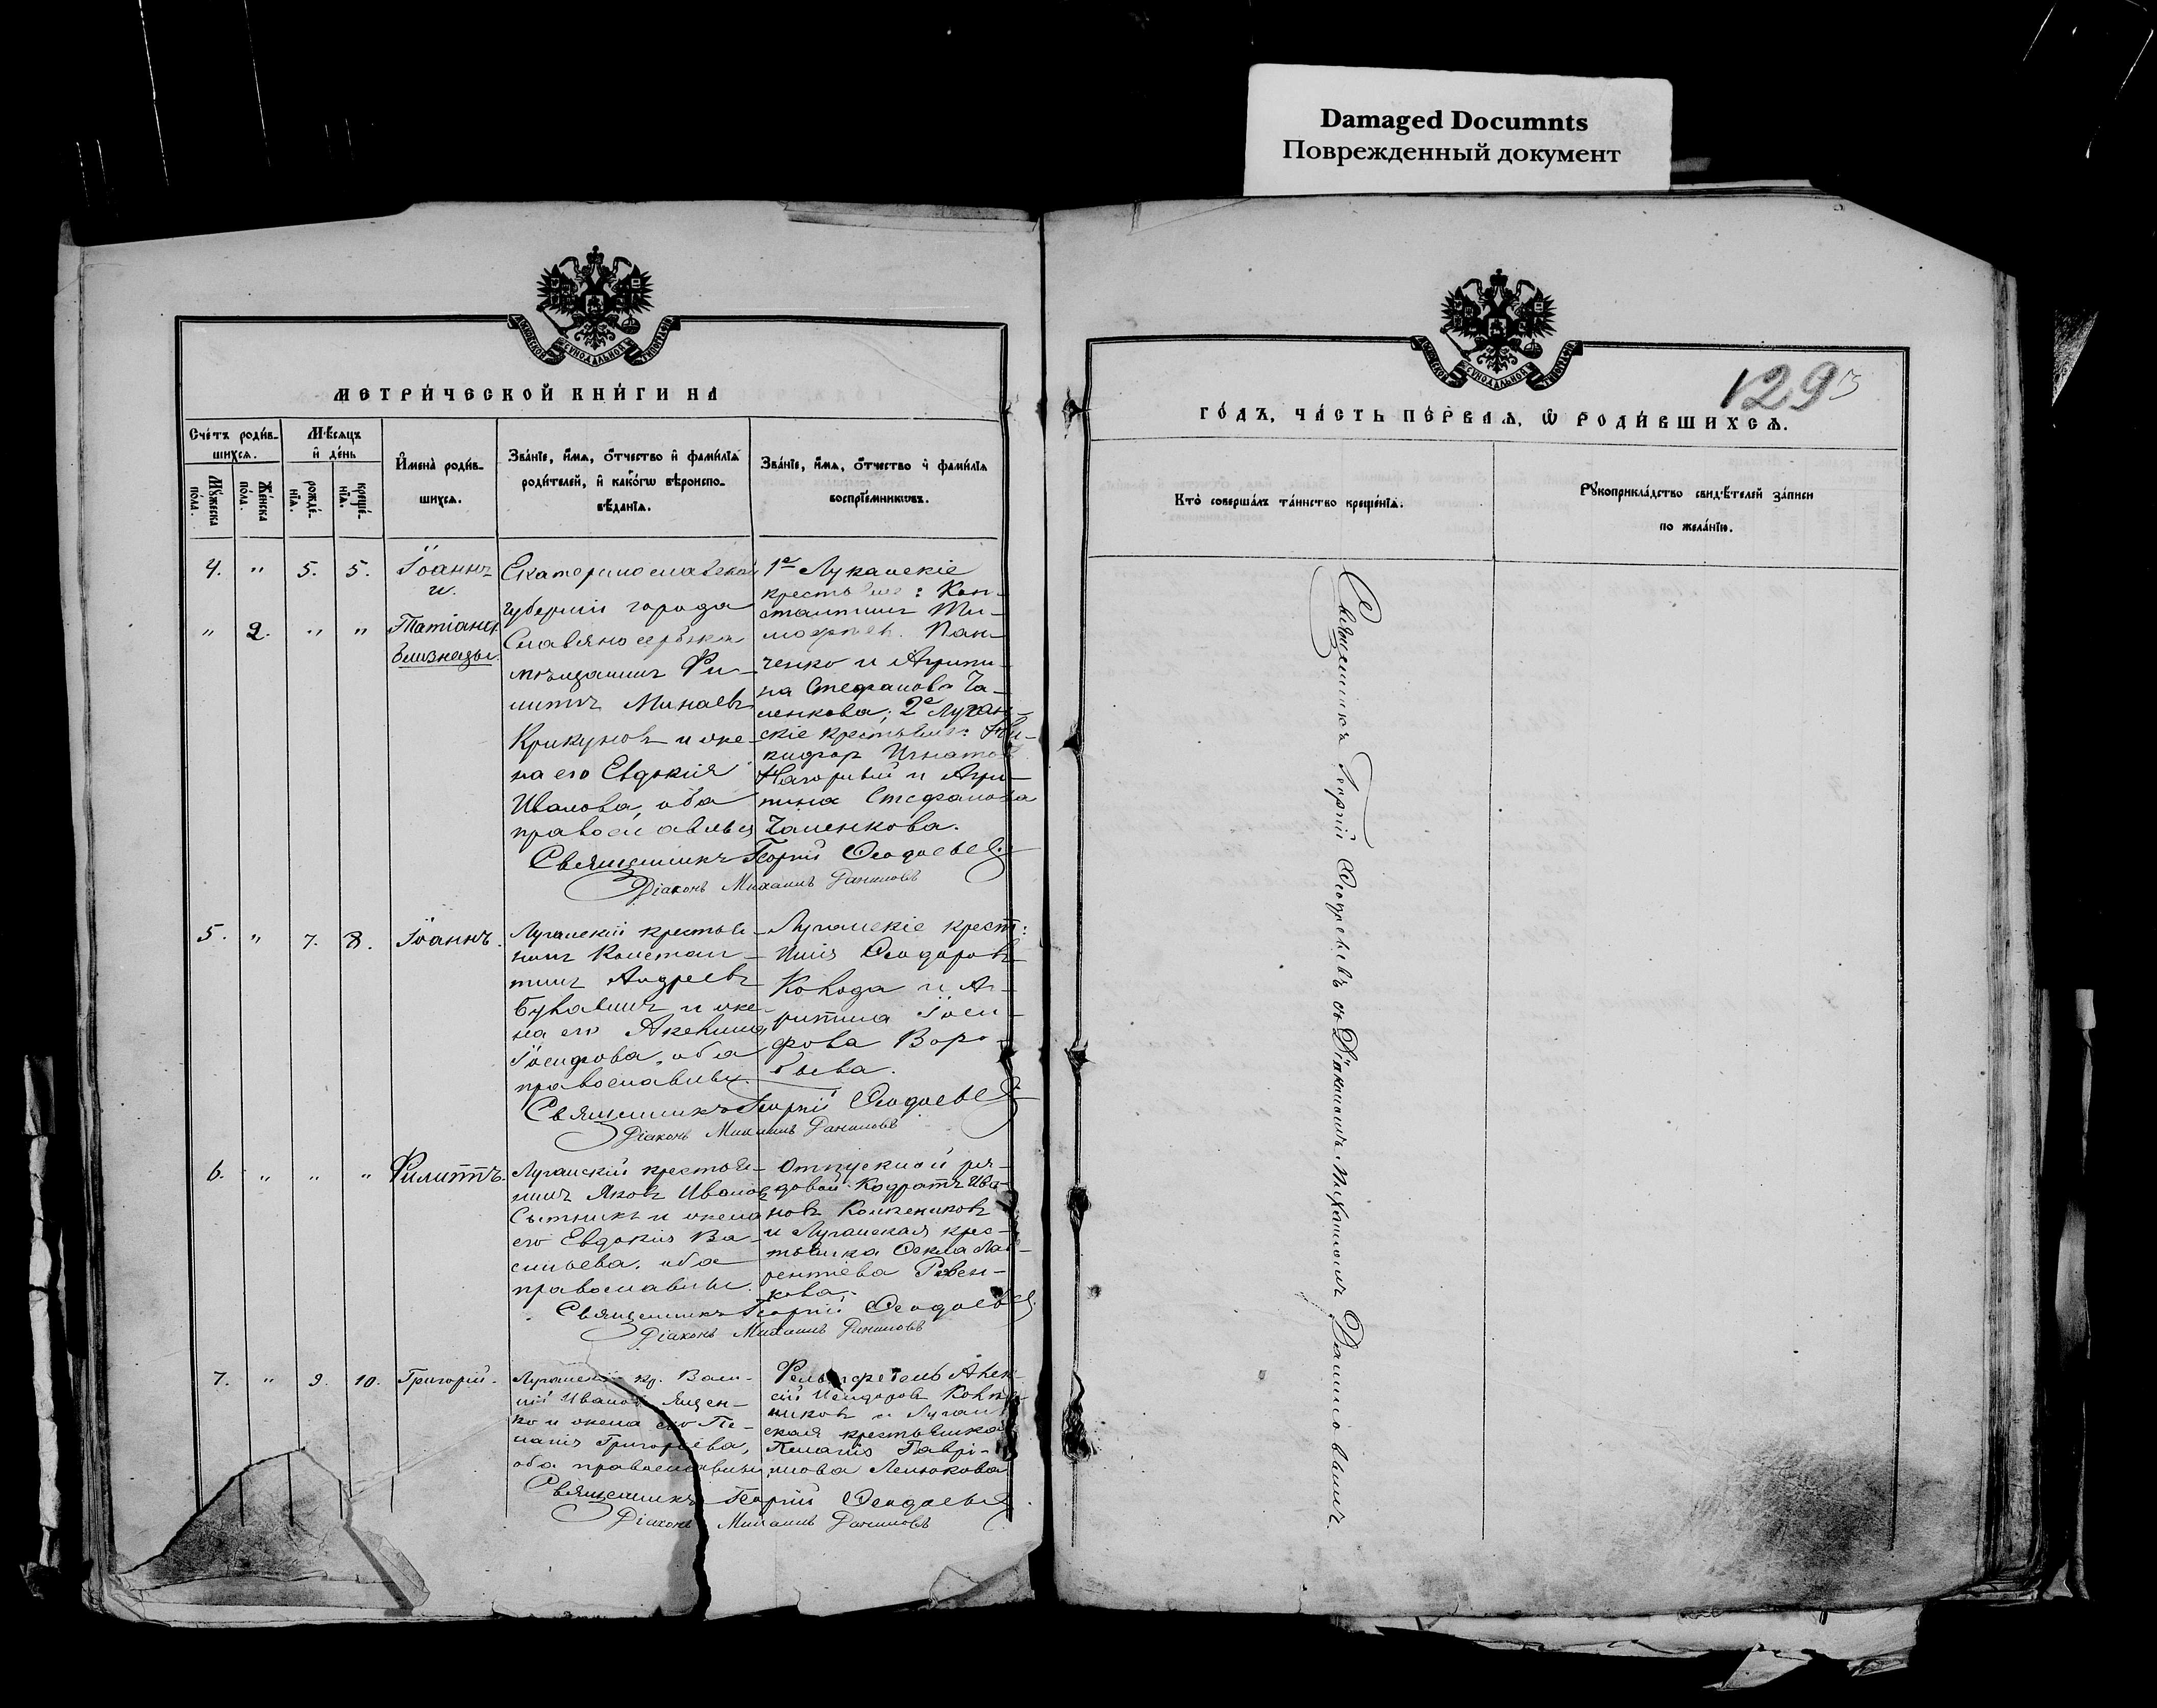 Damaged Documnts
Поврежденный документ
МОСКОВСКОЙ СѴНОДАЛЬНОЙ ТИПОГРАФІИ
МЕТРИ́ЧЕСКОЙ КНИ́ГИ НА
Сче́тъ роди́в-
шихся.
Мѣсяцъ
и де́нь
Мꙋ́жеска по́ла.
Же́нска по́ла.
рожде́-
нїя.
креще́-
нїя.
И҆мена̀ роди́в-
шихся.
Зва́нїе, и҆́мя, ѻ҆́тчество и҆ фами́лїя
роди́телей, и҆ како́гѡ вѣроиспо-
вѣ́данїя.
Зва́нїе, и҆́мя, ѻ҆́тчество и҆ фами́лїя
воспрїе́мникѡвъ.
4. " 5. 5. Іоаннъ
и
" 2. " " Татіана
близнецы.
Екатеринославской
губерніи города
Славяносербска
мѣщанинъ Фи-
липпъ Минаевъ
Крикуновъ и же-
на его Евдокія
Иванова, оба
православные
1е Луганскіе
крестьяне: Кон-
стантинъ Ти-
мофеев. Пан-
ченко и Агрипи-
на Стефанова Ча-
ленкова; 2е Луган-
скіе крестьяне: Ни-
кифор Игнатов
Нагорный и Агри-
пина Стефанова
Чаленкова.
Священникъ Георгій Ѳеодосьевъ
Діаконъ Михаилъ Даниловъ
5. " 7. 8. Іоаннъ.
Луганскій крестья-
нинъ Констан-
тинъ Андреевъ
и же-
на его Аксинія
Іосифова, оба
православны.
Луганскіе крест:
Ѳеодоровъ
и А-
Іоси-
фова Воро-
бьева.
Священникъ Георгій Ѳеодосьевъ
Діаконъ Михаилъ Даниловъ
6. " " " Филиппъ.
Луганскій крестья-
нинъ Яковъ Ивановъ
Сытникъ и жена
его Евдокія Ва-
сильева, оба
православны.
Отпускной ря-
довой Кодратъ Ива-
новъ
и Луганская крес-
тьянка Ѳекла Лав-
рентіева Ревен-
кова.
Священникъ Георгій Ѳеодосьевъ
Діаконъ Михаилъ Даниловъ
7. " 9. 10. Григорій.
Луганскій кр. Васи-
лій Ивановъ Яцен-
ко и жена его Пе-
лагія Григоріева,
оба православны
Фельдфебель Алек-
сій
и Луган-
ская крестьянка
Пелагія Гаврі-
лова
Священникъ Георгій Ѳеодосьевъ
Діаконъ Михаилъ Даниловъ
МОСКОВСКОЙ СѴНОДАЛЬНОЙ ТИПОГРАФІИ
129
ГО́ДЪ, ЧА́СТЬ ПЕ́РВАЯ, Ѡ҆ РОДИ́ВШИХСЯ.
Кто̀ соверша́лъ та́инство креще́нїя.
Рꙋкоприкла́дство свидѣ́телей за́писи
по жела́нїю.
Священникъ Георгій Ѳеодосьевъ съ Діакономъ Михаиломъ Даниловымъ.